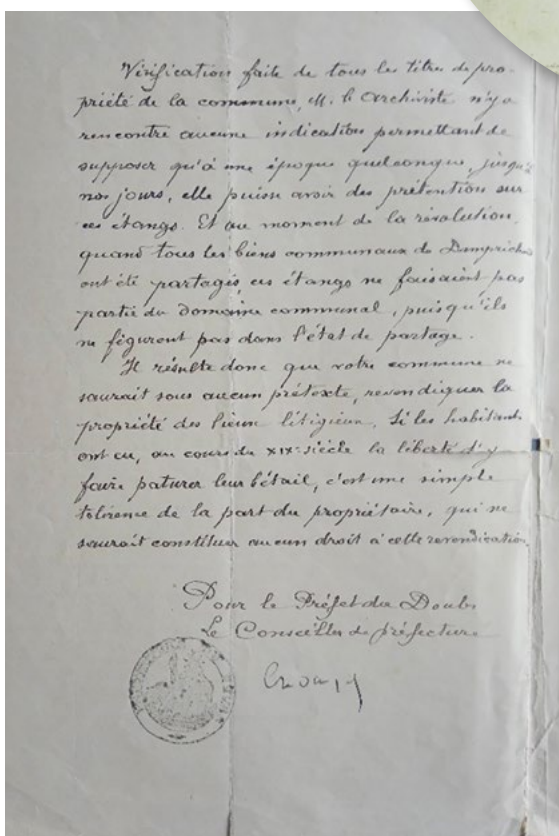 Vérification faite de tous les titres de pro-
priété de la commune, M. l'Archiviste n'y a
rencontré aucune indication permettant de
supposer qu'à une époque quelconque, jusqu'à
nos jours, elle puisse avoir des prétentions sur
ces étangs. Et au moment de la révolution,
quand tous les biens communaux de Damprichard
ont été partagés, ces étangs ne faisaient pas
partie du domaine communal, puisqu'ils
ne figurent pas dans l'état de partage.
Il résulte donc que votre commune ne
saurait sous aucun prétexte, revendiquer la
propriété des lieux litigieux. Si les habitants
ont eu, au cours du XIXe siècle la liberté d'y
faire paturer leur bétail, c'est une simple
tolérence de la part du propriétaire, qui ne
saurait constituer aucun droit à cette revendication.
Pour le Préfet du Doubs
Le Conseiller de préfecture